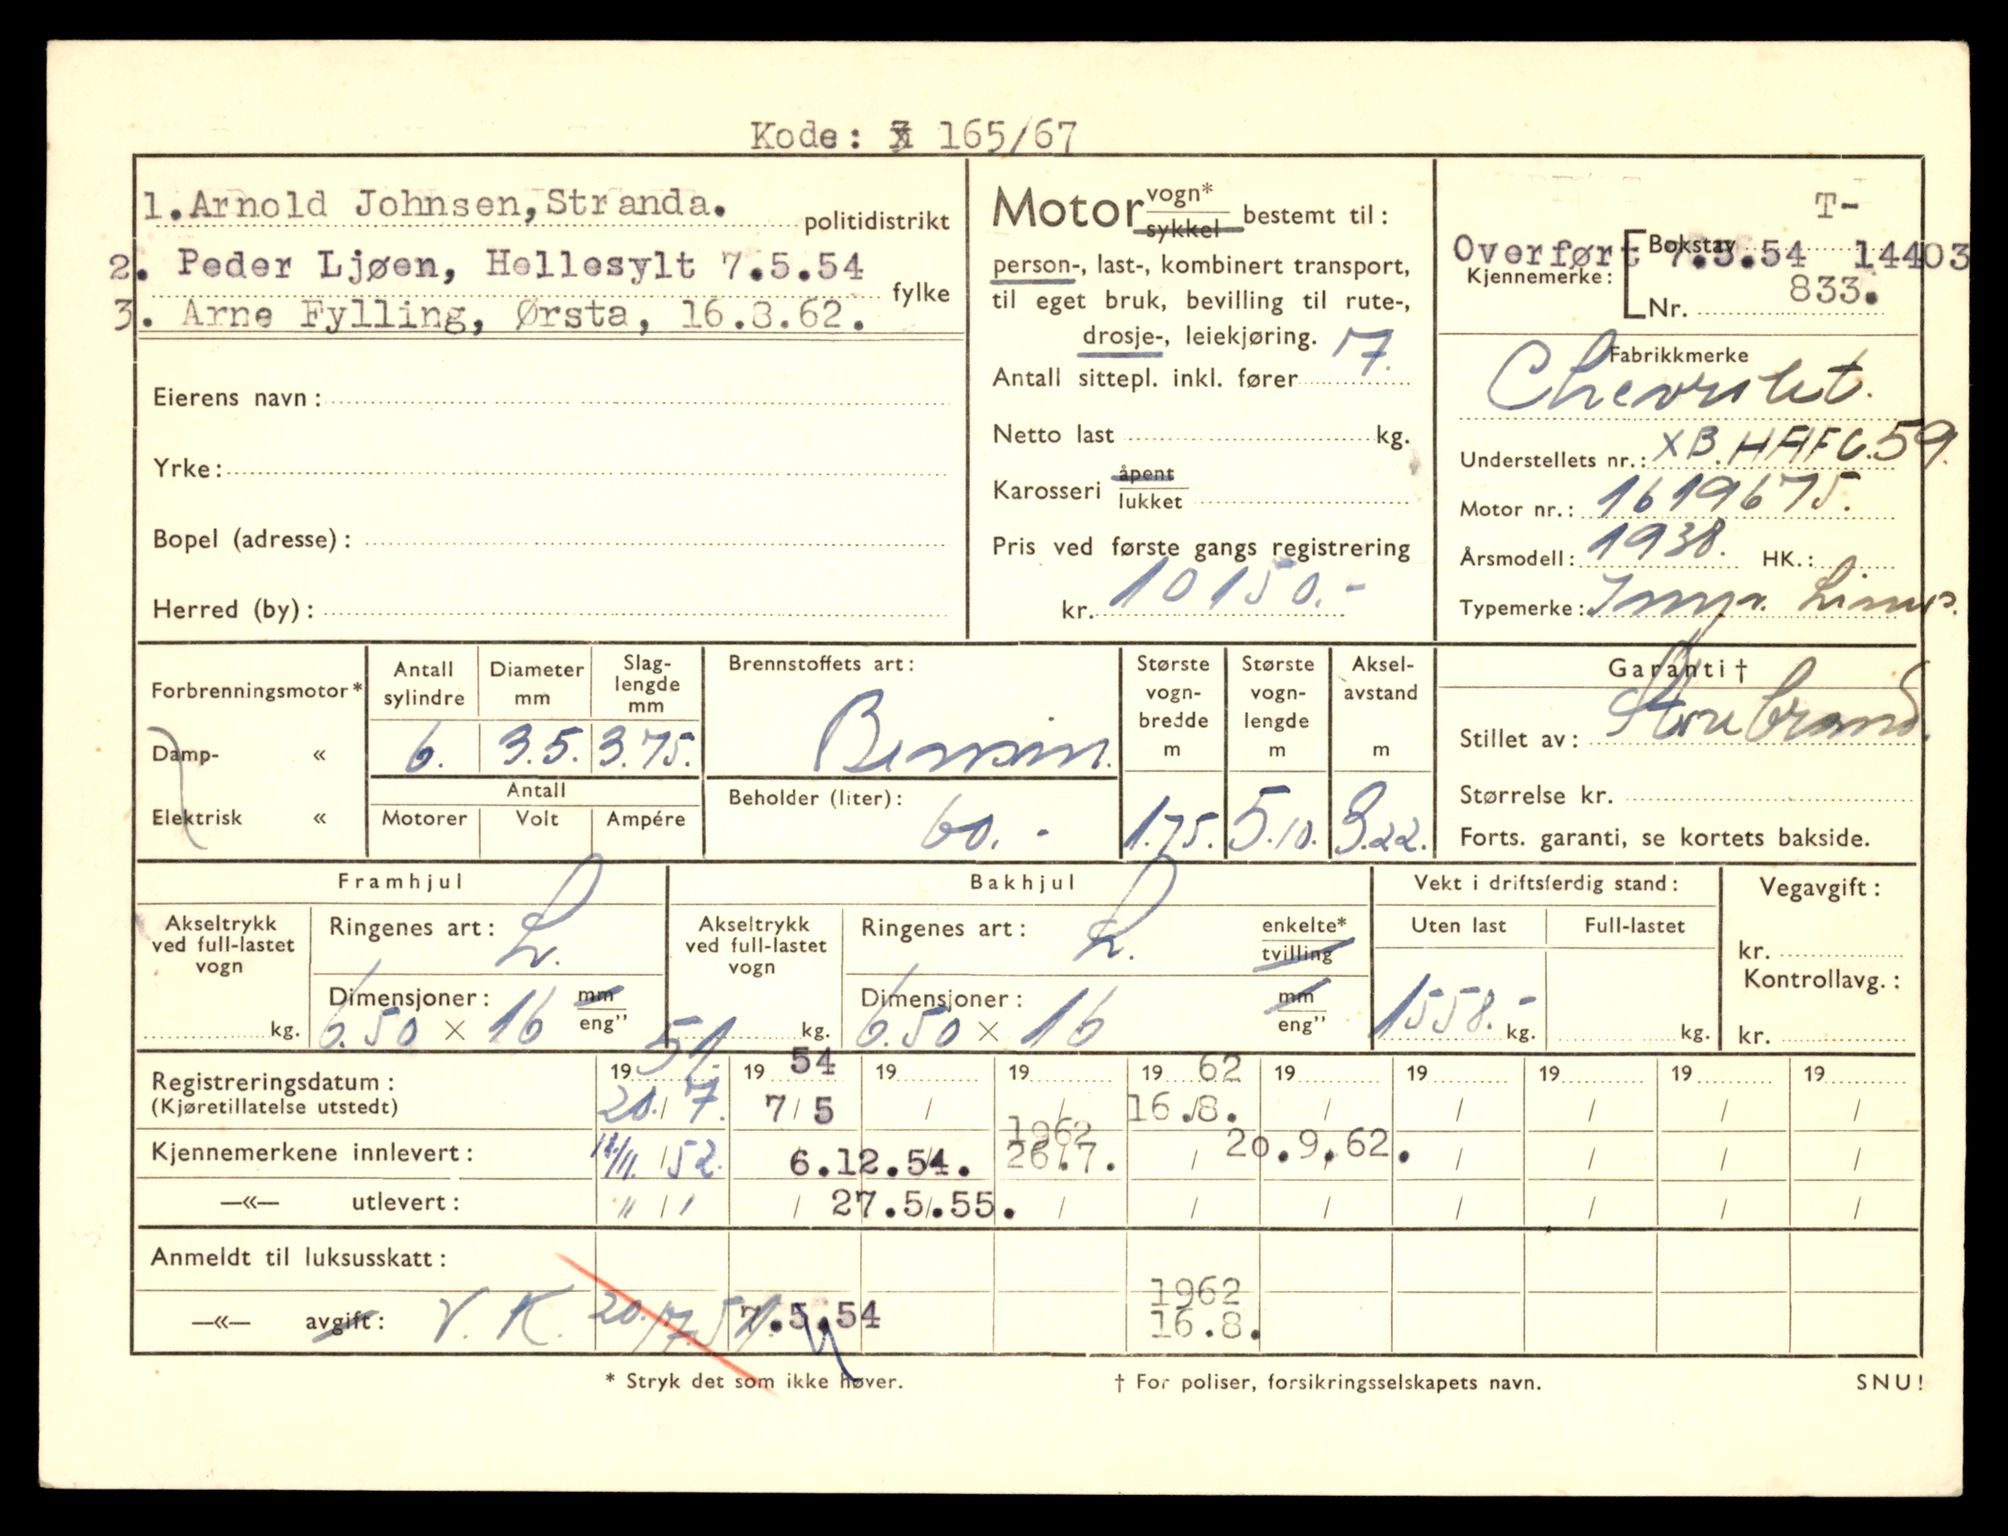 Kode: 165/67
1.Arnold Johnsen,Stranda. politidistrikt
2. Peder Ljøen, Hellesylt 7.5.54
fylke
3. Arne Fylling, Ørsta, 16.8.62.
Eierens navn:
Yrke:
Bopel (adresse):
Herred (by):
Motor vogn*
sykkel bestemt til:
person-, last-, kombinert transport,
til eget bruk, bevilling til rute-,
drosje-, leiekjøring.
Antall sittepl. inkl. fører 7.
Netto last kg.
Karosseri åpent
lukket
Pris ved første gangs registrering
kr. 10150.-
T-
Bokstav
Overført 7.5.54 14403
Kjennemerke:
Nr. 833.
Fabrikkmerke
Chevrolet.
Understellets nr.:
Motor nr.: 1619675.
Årsmodell: 1938. HK.:
Typemerke:
Forbrenningsmotor*
Damp- «
Elektrisk «
Antall sylindre
6.
Diameter mm
3.5.
Slag-
lengde
mm
3.75.
Antall
Motorer Volt Ampére
Brennstoffets art:
Bensin.
Beholder (liter):
60.-
Største
vogn-
bredde
m
1.75.
Største
vogn-
lengde
m
5.10.
Aksel-
avstand
m
3.22.
Garanti †
Stillet av: Storebrand.
Størrelse kr.
Forts. garanti, se kortets bakside.
Framhjul
Akseltrykk
ved full-lastet
vogn
kg.
Ringenes art: L.
Dimensjoner: mm
6.50 × 16 eng”
Bakhjul
Akseltrykk
ved full-lastet
vogn
kg.
Ringenes art: L. enkelte*
tvilling
Dimensjoner: mm
6.50 × 16 eng”
Vekt i driftsferdig stand:
Uten last Full-lastet
1558.- kg. kg.
Vegavgift:
kr.
Kontrollavg.:
kr.
Registreringsdatum: 19 51. 19 54 19 19 19 62 19 19 19 19 19
(Kjøretillatelse utstedt) 20./7. 7/5 / / 16./8. / / / / /
1962
Kjennemerkene innlevert: 11/11. / 52. 6.12.54. 26.7. / 20.9.62. / / / /
—«— utlevert: / 27.5.55. / / / / / / /
Anmeldt til luksusskatt:
1962
—«— avgift: V. K. 20./7.51. 7.5.54 16.8.
* Stryk det som ikke høver.
† For poliser, forsikringsselskapets navn.
SNU!